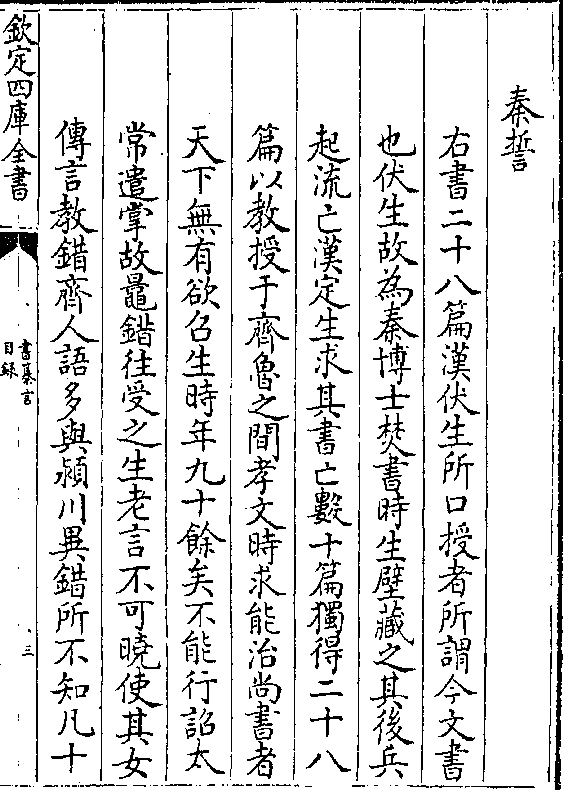 秦誓
右書二十八篇漢伏生所口授者所謂今文書
也伏生故為秦博士焚書時生壁藏之其後兵
起流亡漢定生求其書亡數十篇獨得二十八
篇以教授于齊魯之間孝文時求能治尚書者
天下無有欲召生時年九十餘矣不能行詔太
常遣掌故鼂錯往受之生老言不可曉使其女
傳言教錯齊人語多與潁川異錯所不知凡十
欽定四庫全書
書纂言
目錄
三